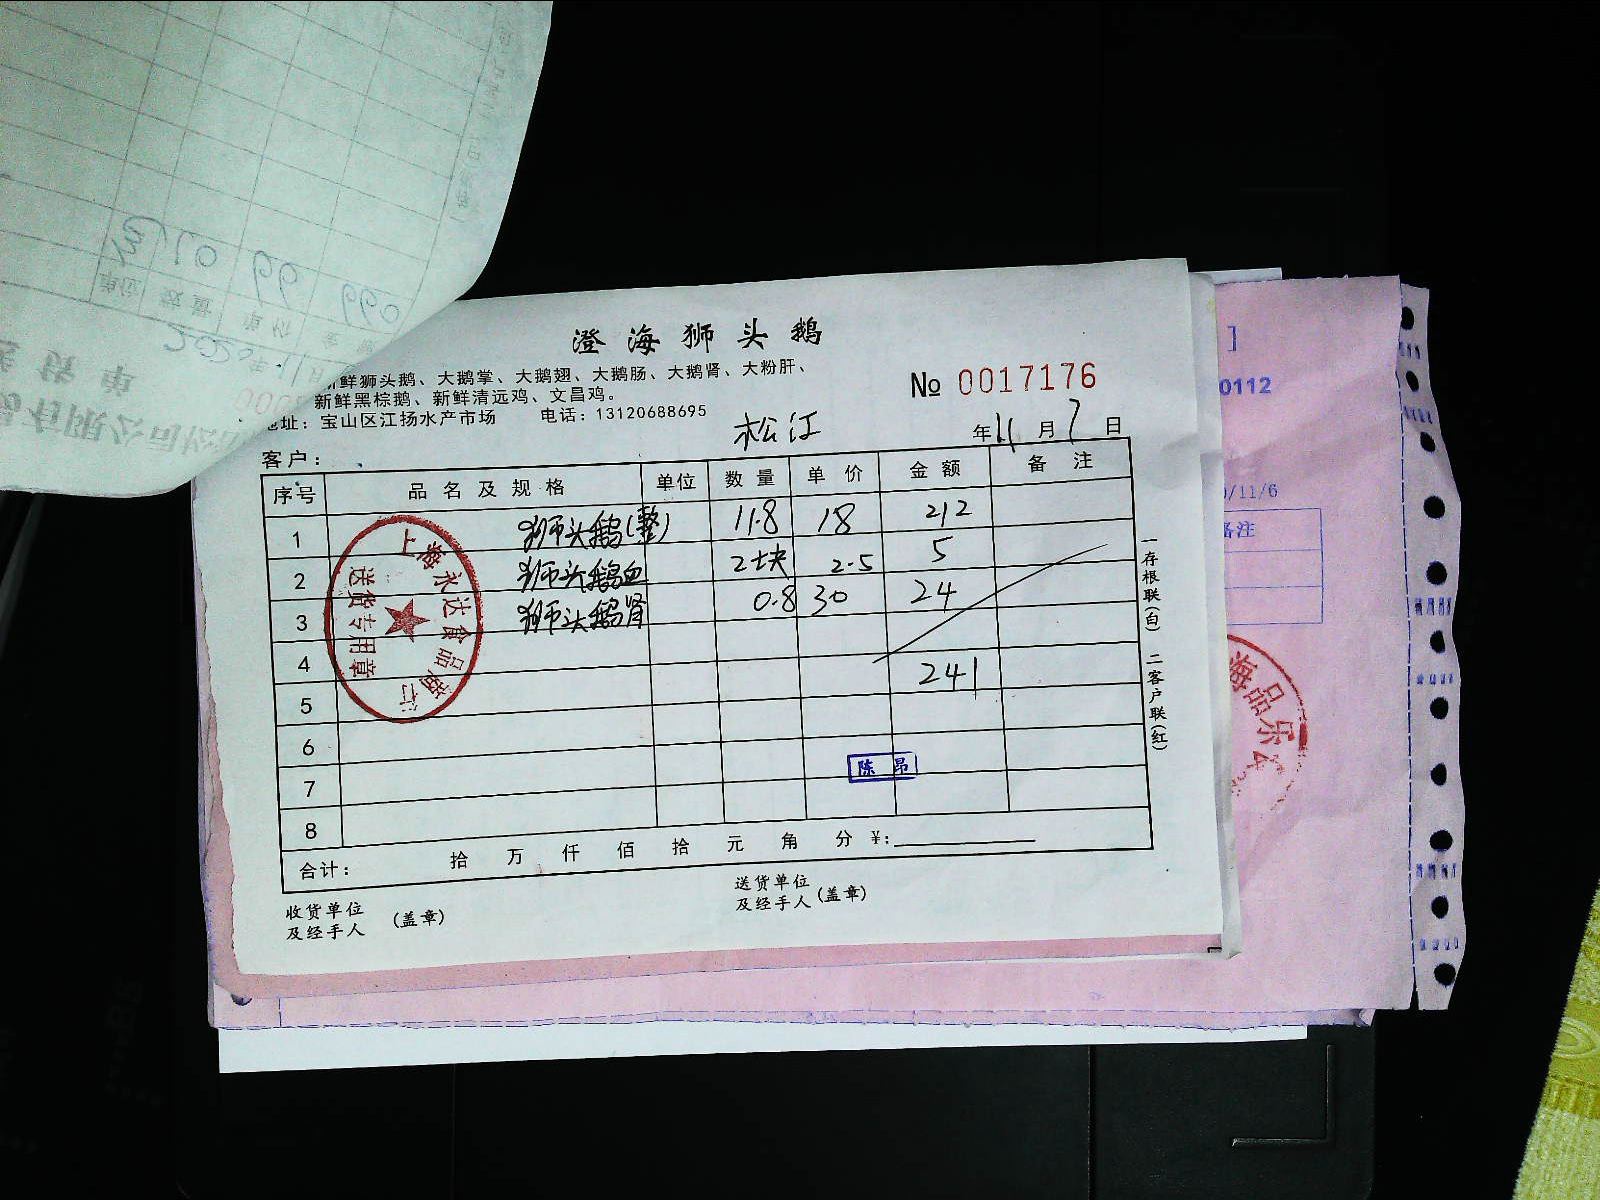 澄海狮头鹅
新鲜狮头鹅、大鹅掌、大鹅翅、大鹅肠、大鹅肾、大粉肝、
新鲜黑棕鹅、新鲜清远鸡、文昌鸡。
地址：宝山区江扬水产市场 电话：13120688695
№ 0017176
松江
客户： 年 11 月 7 日
序号 品名及规格 单位 数量 单价 金额 备注
1 狮头鹅(整) 11.8 18 212
2 狮头鹅血 2块 2.5 5
3 狮头鹅肾 0.8 30 24
4 241
5
6
7
8
陈昂
合计： 拾 万 仟 佰 拾 元 角 分 ¥:
收货单位
及经手人 (盖章)
送货单位
及经手人 (盖章)
一存根联(白) 二客户联(红)
上海永达食品商行
送货专用章
0112
/11/6
备注
海品乐